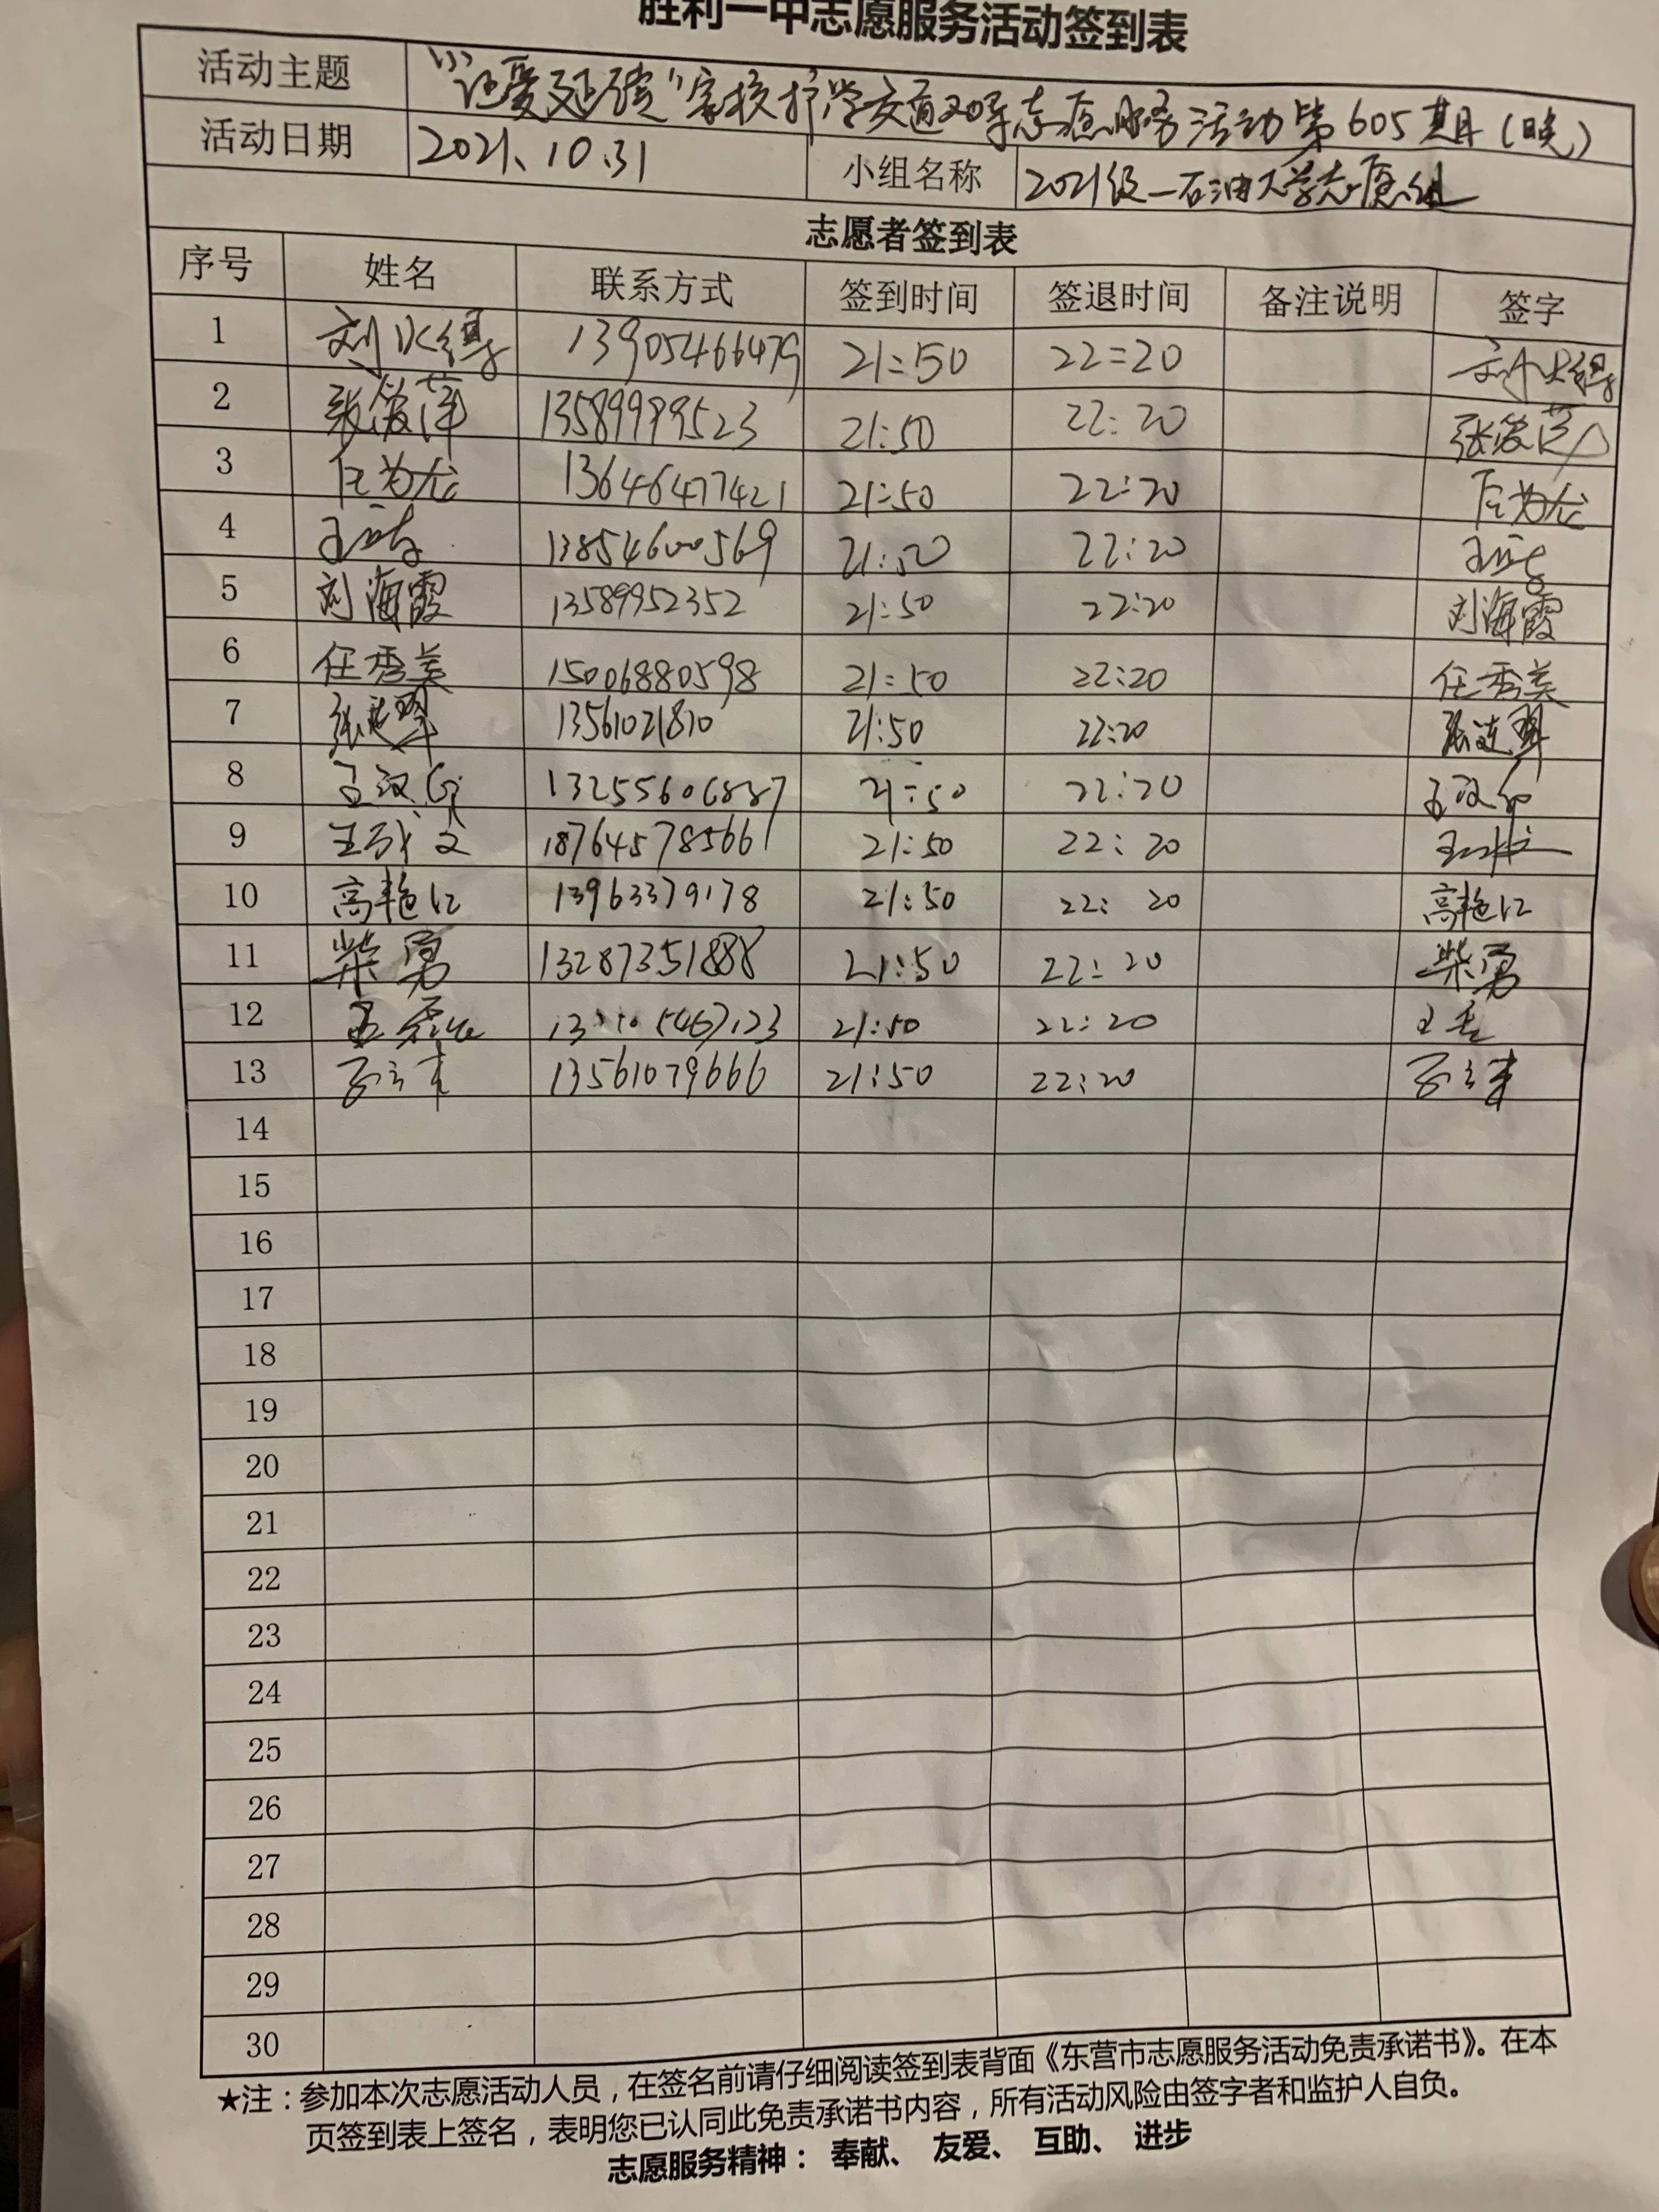 胜利一中志愿服务活动签到表
活动主题 "让爱延续"家校护学交通劝导志愿服务活动第605期(晚)
活动日期 2021、10.31 小组名称 2021级—石油大学志愿组
志愿者签到表
序号 姓名 联系方式 签到时间 签退时间 备注说明 签字
1 13905466479 21:50 22:20
2 13589999523 21:50 22:20
3 任为龙 13646477421 21:50 22:20 任为龙
4 13854600569 21:50 22:20
5 刘海霞 13589952352 21:50 22:20 刘海霞
6 任秀美 15006880598 21:50 22:20 任秀美
7 13561021810 21:50 22:20
8 13255606887 21:50 22:20
9 18764578566 21:50 22:20
10 高艳红 13963379178 21:50 22:20 高艳红
11 柴勇 13287351888 21:50 22:20 柴勇
12 21:50 22:20
13 13561079666 21:50 22:20
14
15
16
17
18
19
20
21
22
23
24
25
26
27
28
29
30
★注：参加本次志愿活动人员，在签名前请仔细阅读签到表背面《东营市志愿服务活动免责承诺书》。在本
页签到表上签名，表明您已认同此免责承诺书内容，所有活动风险由签字者和监护人自负。
志愿服务精神： 奉献、 友爱、 互助、 进步